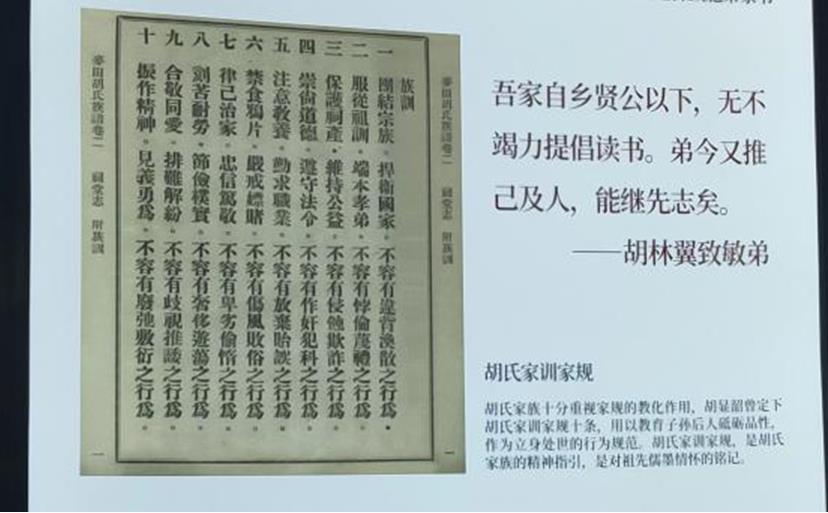 麥田胡氏族譜卷二　祠堂志　附族訓　一
族訓
一　團結宗族。捍衛國家。不容有違背渙散之行爲。
二　服從祖訓。端本孝弟。不容有悖倫蔑禮之行爲。
三　保護祠產。維持公益。不容有侵蝕欺詐之行爲。
四　崇尚道德。遵守法令。不容有作奸犯科之行爲。
五　注意教養。勤求職業。不容有放棄貽誤之行爲。
六　禁食鴉片。嚴戒嫖賭。不容有傷風敗俗之行爲。
七　律己治家。忠信篤敬。不容有卑劣偷惰之行爲。
八　刻苦耐勞。節儉樸實。不容有奢侈遊蕩之行爲。
九　合敬同愛。排難解紛。不容有歧視推諉之行爲。
十　振作精神。見義勇爲。不容有廢弛敷衍之行爲。
麥田胡氏族譜卷二　祠堂志　附族訓　一
吾家自乡贤公以下，无不
竭力提倡读书。弟今又推
己及人，能继先志矣。
——胡林翼致敏弟
胡氏家训家规
胡氏家族十分重视家规的教化作用，胡显韶曾定下
胡氏家训家规十条，用以教育子孙后人砥砺品性，
作为立身处世的行为规范。胡氏家训家规，是胡氏
家族的精神指引，是对祖先儒墨情怀的铭记。